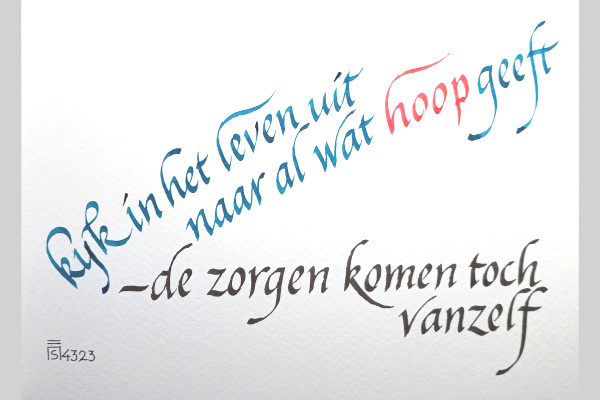 kijk in het leven uit
naar al wat hoop geeft
–de zorgen komen toch
vanzelf
S 4323